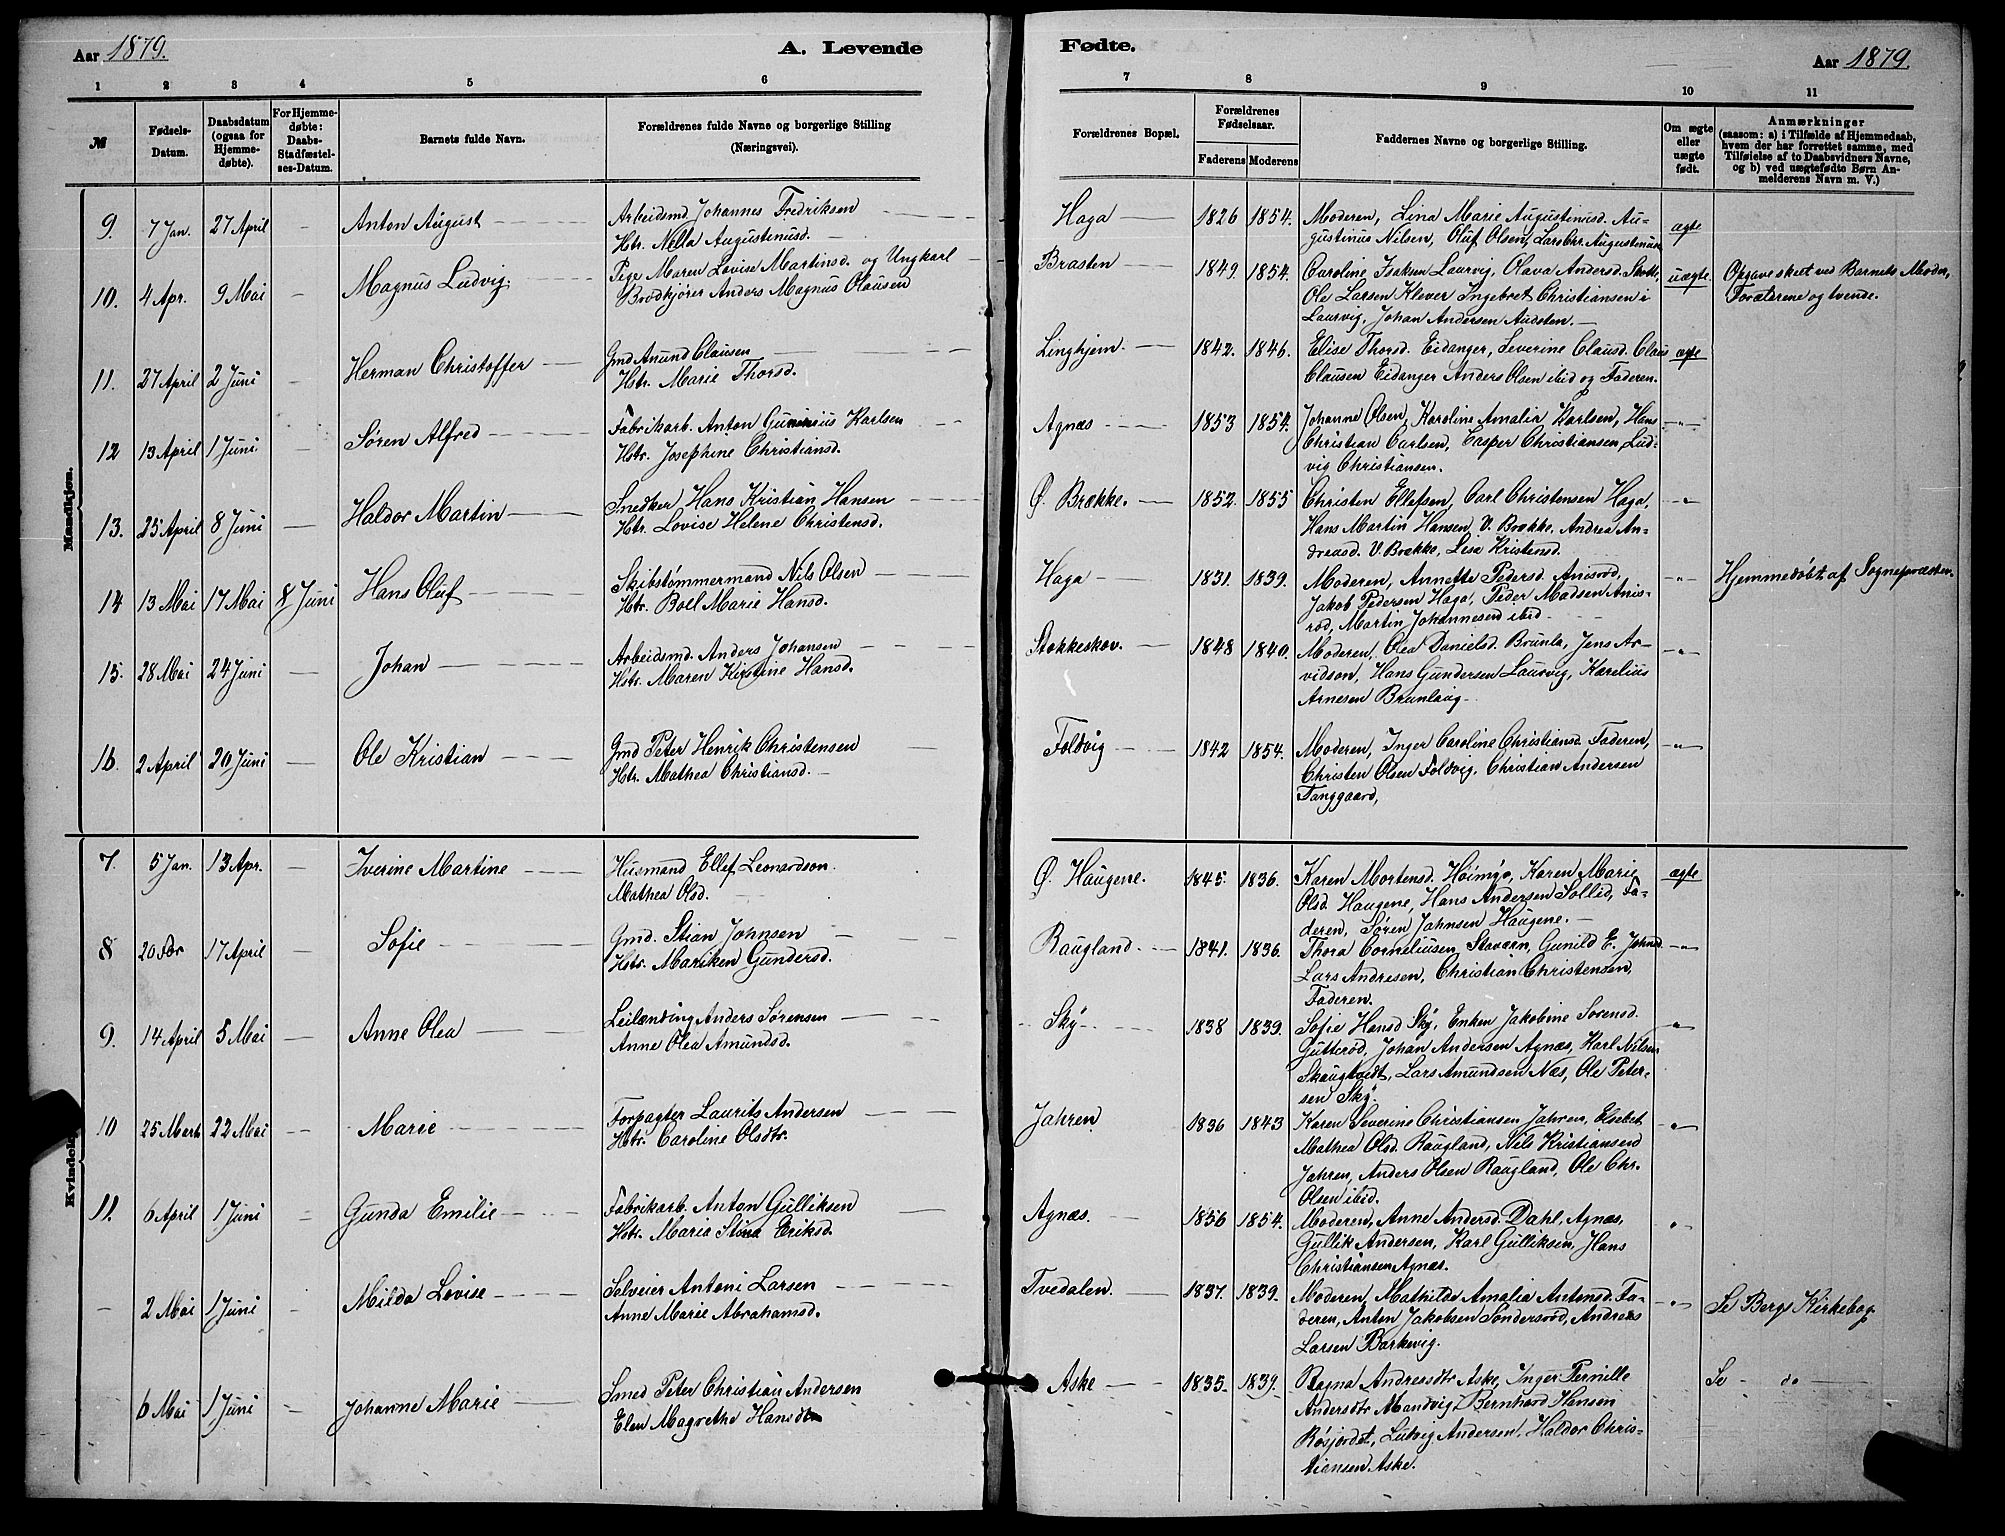 Aar 1879.
A. Levende
1 2 3 4 5 6
№
Fødsels-Datum.
Daabsdatum (ogsaa for Hjemmedøbte).
For Hjemmedøbte: Daabs-Stadfæstelses-Datum.
Barnets fulde Navn.
Forældrenes fulde Navne og borgerlige Stilling (Næringsvei).
Mandkjøn.
9. 7 Jan. 27 April - Anton August
Arbeidsmd Johannes Fredriksen
Hstr. Nella Augustinusd.
10. 4 Apr. 9 Mai - Magnus Ludvig.
Pige Maren Lovise Martinsd. og Ungkarl
Brødkjører Anders Magnus Olausen
11. 27 April 2 Juni - Herman Christoffer
Gmd Anund Clausen
Hstr. Marie Thorsd.
12 13 April 1 Juni - Søren Alfred
Fabrikarb. Anton Gunerius Karlsen
Hstr. Josephine Christiansd.
13. 25 April 8 Juni - Haldor Martin
Snedker Hans Kristian Hansen
Hstr. Lovise Helene Christensd.
14 13 Mai 17 Mai 8 Juni Hans Oluf
Skibstømmermand Nils Olsen
Hstr. Boel Marie Hansd.
15. 28 Mai 24 Juni - Johan
Arbeidsmd. Anders Johansen
Hstr. Maren Kirstine Hansd.
16. 2 April 20 Juni - Ole Kristian
Gmd Peter Henrik Christensen
Hstr. Mathea Christiansd.
Kvindekjøn
7. 5 Jan. 13 Apr. - Iverine Martine
Husmand Ellef Leonardson
Mathea Olsd.
8 20 17 April - Sofie
Gmd. Stian Johnsen
Hstr. Mariken Gundersd.
9. 14 April 5 Mai - Anne Olea
Leilænding Anders Sørensen
Anne Olea Amundsd.
10 25 Marts 22 Mai - Marie
Forpagter Laurits Andersen
Hstr. Caroline Olsdtr.
11. 6 April 1 Juni - Gunda Emilie
Fabrikarb. Anton Gulliksen
Hstr. Maria Stina Eriksd.
- 2 Mai 1 Juni - Milda Lovise
Selveier Antoni Larsen
Anne Marie Abrahamsd.
6 Mai 1 Juni - Johanne Marie
Smed Peter Christian Andersen
Elen Magrethe Hansdtr
Fødte.
Aar 1879.
7 8 9 10 11
Forældrenes Bopæl.
Forældrenes Fødselsaar.
Faderens Moderens
Faddernes Navne og borgerlige Stilling.
Om ægte eller uægte født.
Anmærkninger
(saasom: a) i Tilfælde af Hjemmedaab,
hvem der har forrettet samme, med
Tilføielse af to Daabsvidners Navne,
og b) ved uægtefødte Børn An-
melderens Navn m. V.)
Haga 1826 1854. Moderen, Lina Marie Augustinusd. Au- ægte
gustinus Nilsen, Oluf Olsen, Lars Chr. Augustinus
Brasten 1849. 1854. Caroline Isaksen Laurvig, Olava Andersd. uægte. Opgave skeet ved Barnets Moder,
Ole Larsen Klever Ingebret Christiansen i Forældrene og tvende.
Laurvig, Johan Andersen Audsten.
Linghjem. 1842. 1846. Elise Thorsd. Eidanger, Severine Clausd. Claus ægte
Clausen Eidanger Anders Olsen ibid og Faderen.
Agnæs 1853 1854. Johanne Olsen, Karoline Amalia Karlsen, Hans -"-
Christian Carlsen, Casper Christiansen, Lud-
vig Christiansen.
Ø. Brække. 1852. 1855 Christen Ellefsen, Carl Christensen Haga, -"-
Hans Martin Hansen, V. Brække. Andrea An-
dreasd. V. Brække, Lisa Kristensd.
Haga 1831. 1839. Moderen, Annette Pedersd. Anisrød, -"- Hjemmedøbt af Sognepræsten.
Jakob Pedersen Haga, Peder Madsen Anis-
rød, Martin Johannesen ibid
Stokkeskov. 1848 1840. Moderen, Olea Danielsd. Brunla, Jens Ar- -"-
vidson, Hans Gundersen Laurvig, Karelius
Arnesen Brunlaug
Foldvig 1842 1854. Moderen, Inger Caroline Christiansd. Faderen, -"-
Christen Olsen Foldvig, Christian Andersen
Tanggaard,
Ø. Haugene. 1845. 1836. Karen Mortensd. Høimyr, Karen Marie ægte
Olsd. Haugene, Hans Andersen Sollid, Fa-
deren, Søren Jahnsen Haugene.
Raugland. 1841. 1836. Thora Corneliusen, Stavern, Gunild E. Johnsd. -"-
Lars Andresen, Christian Christensen,
Faderen.
Sky 1838 1839. Sofie Hansd Sky, Enken Jakobine Sørensd. "
Gutterød, Johan Andersen Agnæs, Karl Nilsen
Skaugtvedt, Lars Amundsen Næs, Ole Peter-
sen Sky.
Jahren 1836 1843 Karen Severine Christiansen Jahren, Elsebet -"-
Mathea Olsd. Raugland, Nils Kristiansen
Jahren, Anders Olsen Raugland, Ole Chr.
Olsen ibid.
Agnæs. 1856 1854. Moderen, Anne Andersd. Dahl, Agnæs, "
Gullik Andersen, Karl Gulliksen, Hans
Christiansen Agnæs.
Tvedalen. 1837. 1839. Moderen, Mathilde Amalia Antonsd. Fa- -"- Se Bergs Kirkebog
deren, Anton Jakobsen Søndersrød, Andreas
Larsen Barkevig.
Aske 1835. 1839. Ragna Andreasdtr Aske, Inger Pernille Se - do -
Andersdtr Mandvig, Bernhard Hansen
Røsjordet, Ludvig Andersen, Haldor Chris-
tiansen Aske.